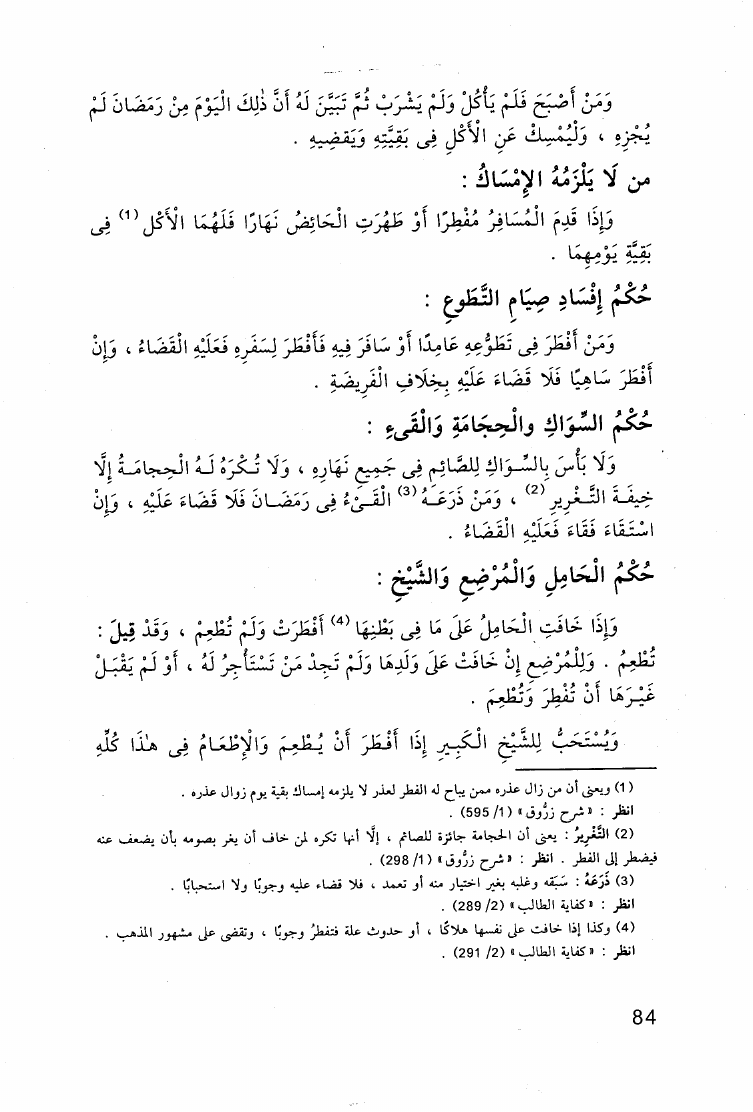 وَمَنْ أَصْبَحَ فَلَمْ يَأْكُلْ وَلَمْ يَشْرَبْ ثُمَّ تَبَيَّنَ لَهُ أَنَّ ذٰلِكَ الْيَوْمَ مِنْ رَمَضَانَ لَمْ
يُجْزِهِ ، وَلْيُمْسِكْ عَنِ الْأَكْلِ فِى بَقِيَّتِهِ وَيَقضِيهِ .
من لَا يَلْزَمُهُ الإِمْسَاكُ :
وَإِذَا قَدِمَ الْمُسَافِرُ مُفْطِرًا أَوْ طَهُرَتِ الْحَائِضُ نَهَارًا فَلَهُمَا الْأَكْل (1) فِى
بَقِيَّةِ يَوْمِهِمَا .
حُكْمُ إِفْسَادِ صِيَامِ التَّطَوعِ :
وَمَنْ أَفْطَرَ فِى تَطَوُّعِهِ عَامِدًا أَوْ سَافَرَ فِيهِ فَأَفْطَرَ لِسَفَرِهِ فَعَلَيْهِ الْقَضَاءُ ، وَإِنْ
أَفْطَرَ سَاهِيًا فَلَا قَضَاءَ عَلَيْهِ بِخِلَافِ الْفَرِيضَةِ .
حُكْمُ السِّوَاكِ والْحِجَامَةِ وَالْقَىءِ :
وَلَا بَأْسَ بِالسِّوَاكِ لِلصَّائِمِ فِى جَمِيعِ نَهَارِهِ ، وَلَا تُكْرَهُ لَهُ الْحِجامَةُ إِلَّا
خِيفَةَ التَّغْرِيرِ (2) ، وَمَنْ ذَرَعَهُ (3) الْقَىْءُ فِى رَمَضَانَ فَلَا قَضَاءَ عَلَيْهِ ، وَإِنْ
اسْتَقَاءَ فَقَاءَ فَعَلَيْهِ الْقَضَاءُ .
حُكْمُ الْحَامِلِ وَالْمُرْضِعِ وَالشَّيْخِ :
وَإِذَا خَافَتِ الْحَامِلُ عَلَى مَا فِى بَطْنِهَا (4) أَفْطَرَتْ وَلَمْ تُطْعِمْ ، وَقَدْ قِيلَ :
تُطْعِمُ . وَلِلْمُرْضِعِ إِنْ خَافَتْ عَلَى وَلَدِهَا وَلَمْ تَجِدْ مَنْ تَسْتَأْجِرُ لَهُ ، أَوْ لَمْ يَقْبَلْ
غَيْرَهَا أَنْ تُفْطِرَ وَتُطْعِمَ .
وَيُسْتَحَبُّ لِلشَّيْخِ الْكَبِيرِ إِذَا أَفْطَرَ أَنْ يُطْعِمَ وَالْإِطْعَامُ فِى هٰذَا كُلِّهِ
(1) ويعنى أن من زال عذره ممن يباح له الفطر لعذر لا يلزمه إمساك بقية يوم زوال عذره .
انظر : « شرح زرُّوق » (1/ 595) .
(2) التَّغْرِيرُ : يعنى أن الحجامة جائزة للصائم ، إلَّا أنها تكره لمن خاف أن يغر بصومه بأن يضعف عنه
فيضطر إلى الفطر . انظر : « شرح زرُّوق » (1/ 298) .
(3) ذَرَعَهُ : سَبَقه وغلبه بغير اختيار منه أو تعمد ، فلا قضاء عليه وجوبًا ولا استحبابًا .
انظر : « كفاية الطالب » (2/ 289) .
(4) وكذا إذا خافت على نفسها هلاكًا ، أو حدوث علة فتفطرُ وجوبًا ، وتقضى على مشهور المذهب .
انظر : « كفاية الطالب » (2/ 291) .
84